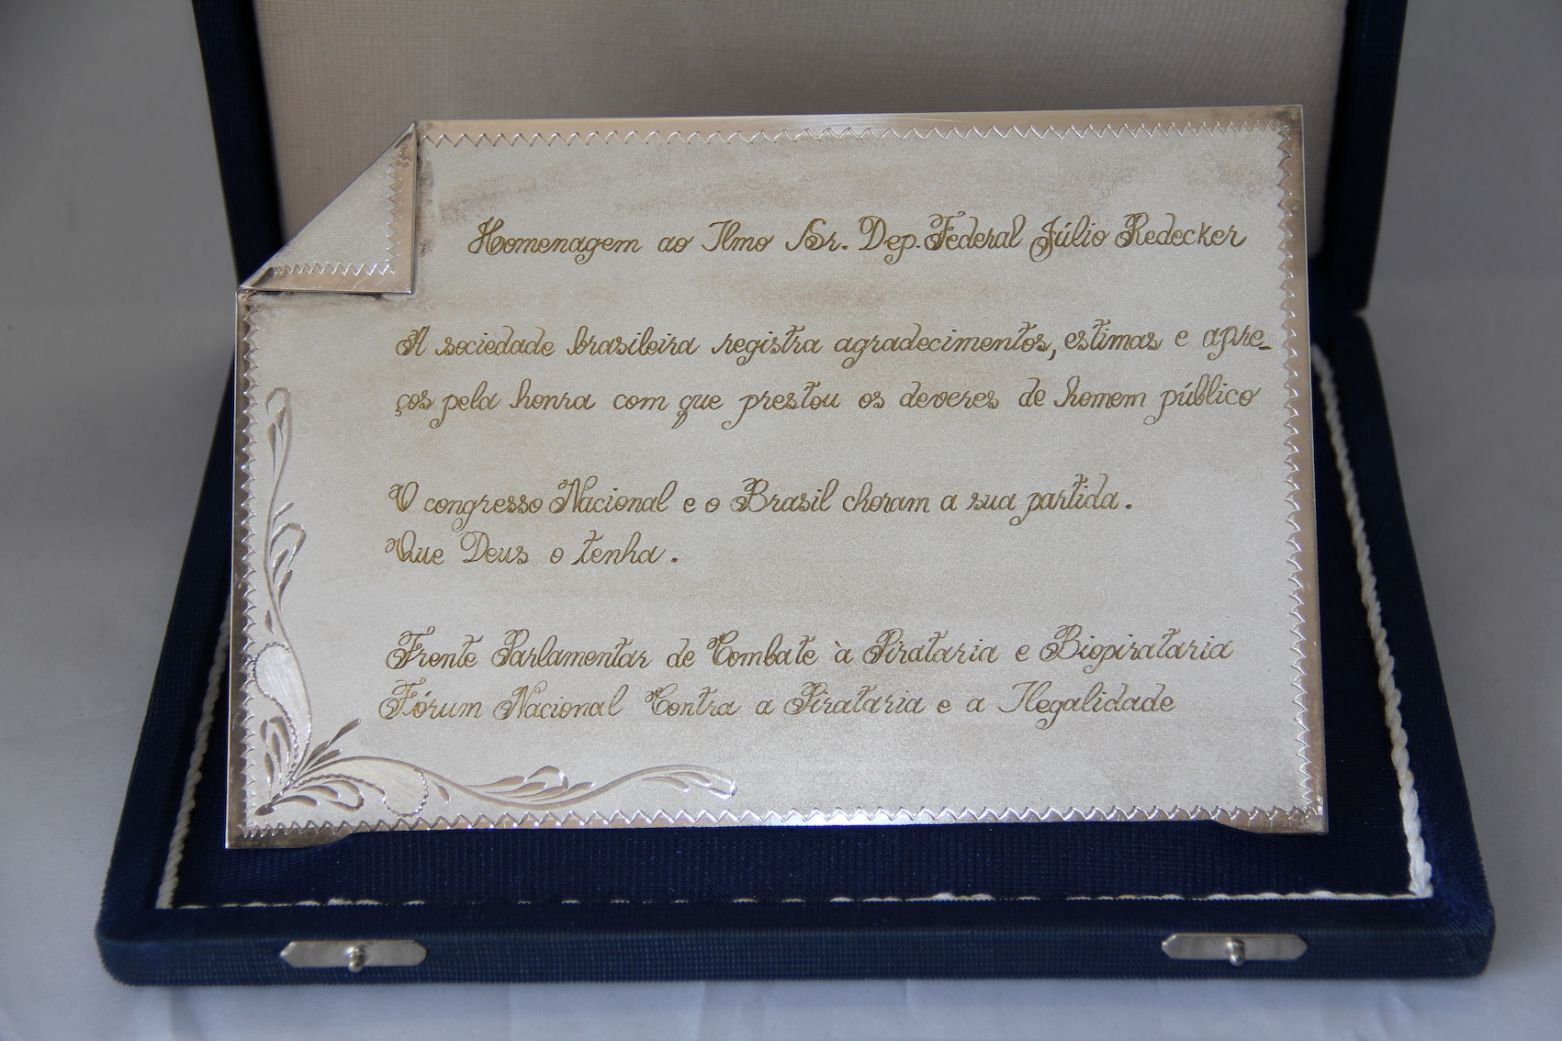 Homenagem ao Ilmo Sr. Dep. Federal Júlio Redecker
A sociedade brasileira registra agradecimentos, estimas e apre-
ços pela honra com que prestou os deveres de homem público
O congresso Nacional e o Brasil choram a sua partida.
Que Deus o tenha.
Frente Parlamentar de Combate à Pirataria e Biopirataria
Fórum Nacional Contra a Pirataria e a Ilegalidade